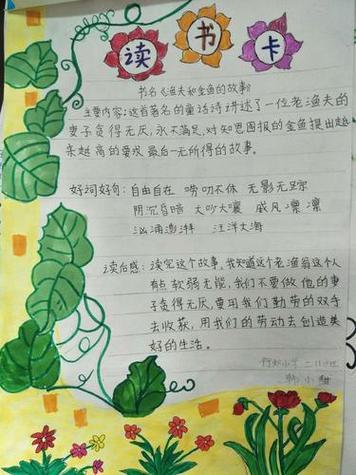 读 书 卡
书名《渔夫和金鱼的故事》
主要内容:这首著名的童话诗讲述了一位老渔夫的
妻子贪得无厌,永不满足,对知恩图报的金鱼提出越
来越高的要求,最后一无所得的故事。
好词好句:自由自在 唠叨不休 无影无踪
阴沉昏暗 大吵大嚷 威风凛凛
汹涌澎湃 汪洋大海
读后感:读完这个故事,我知道这个老渔翁这个人
有点软弱无能,我们不要做他的妻
子贪得无厌,要用我们勤劳的双手
去收获,用我们的劳动去创造美
好的生活。
小学